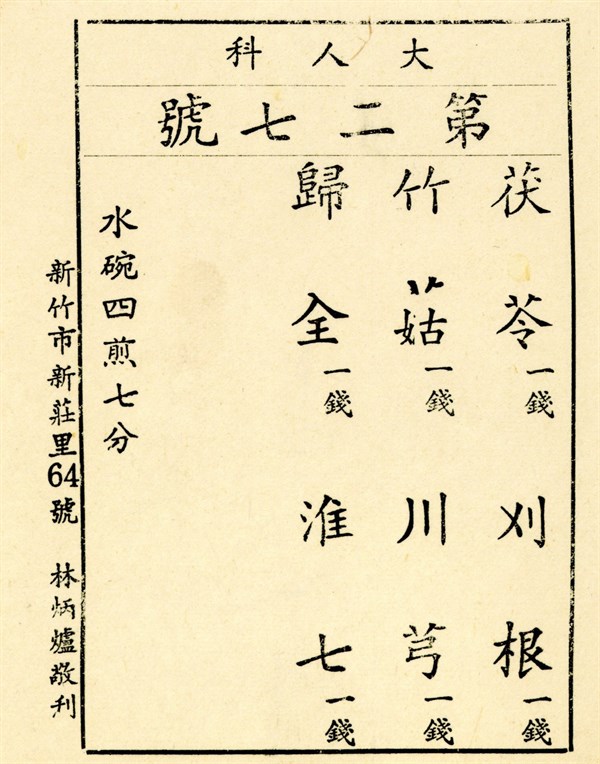 大人科
第二七號
茯苓一錢 刈根一錢
竹菇一錢 川芎一錢
歸全一錢 淮七一錢
水碗四煎七分
新竹市新莊里64號 林炳爐敬刋